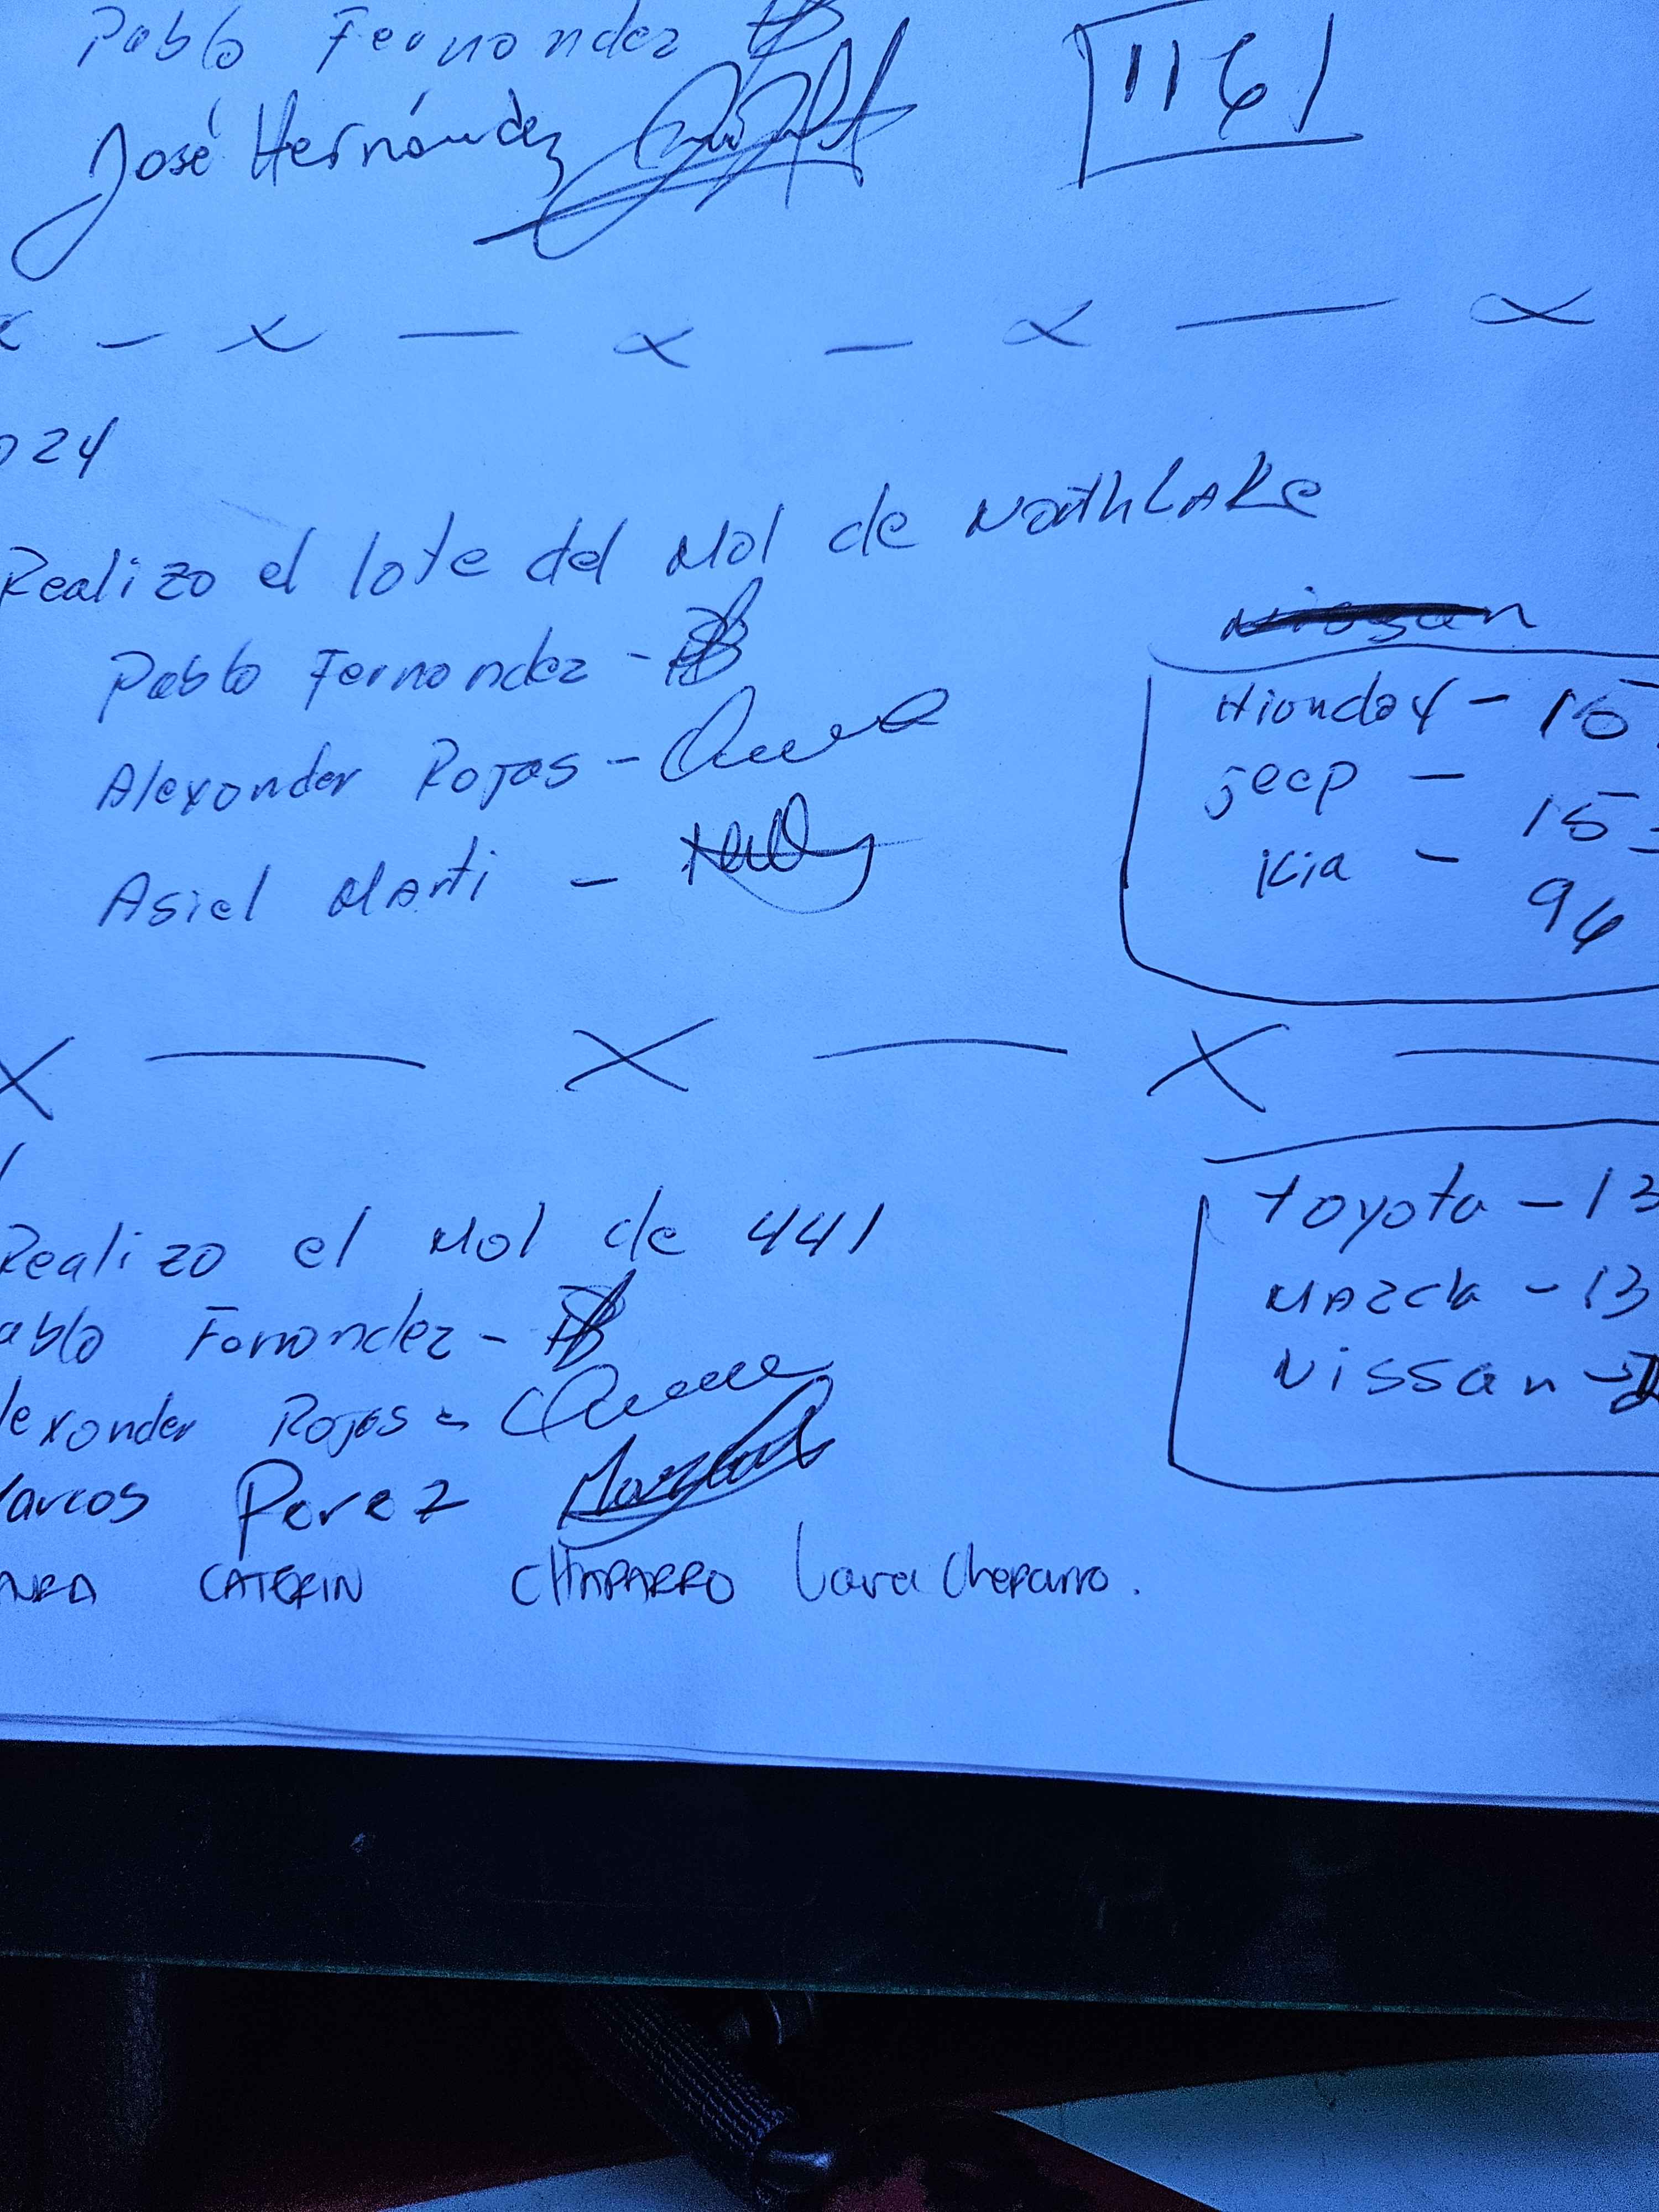 Pablo Fernandez
1161
José Hernández
x - x — x - x — x
024
Realizo el lote del Mol de NorthLAKe
Nissan
Pablo Fernandez -
Hiunday - 16
Alexander Rojas -
Jeep - 15
Asiel Marti -
Kia - 94
X — X — X —
Realizo el Mol de 441
Toyota - 13
ablo Fernandez -
Mazda - 13
lexander Rojas -
Nissan -
arcos Perez
CATERIN CHAPARRO Lara Cheparro.